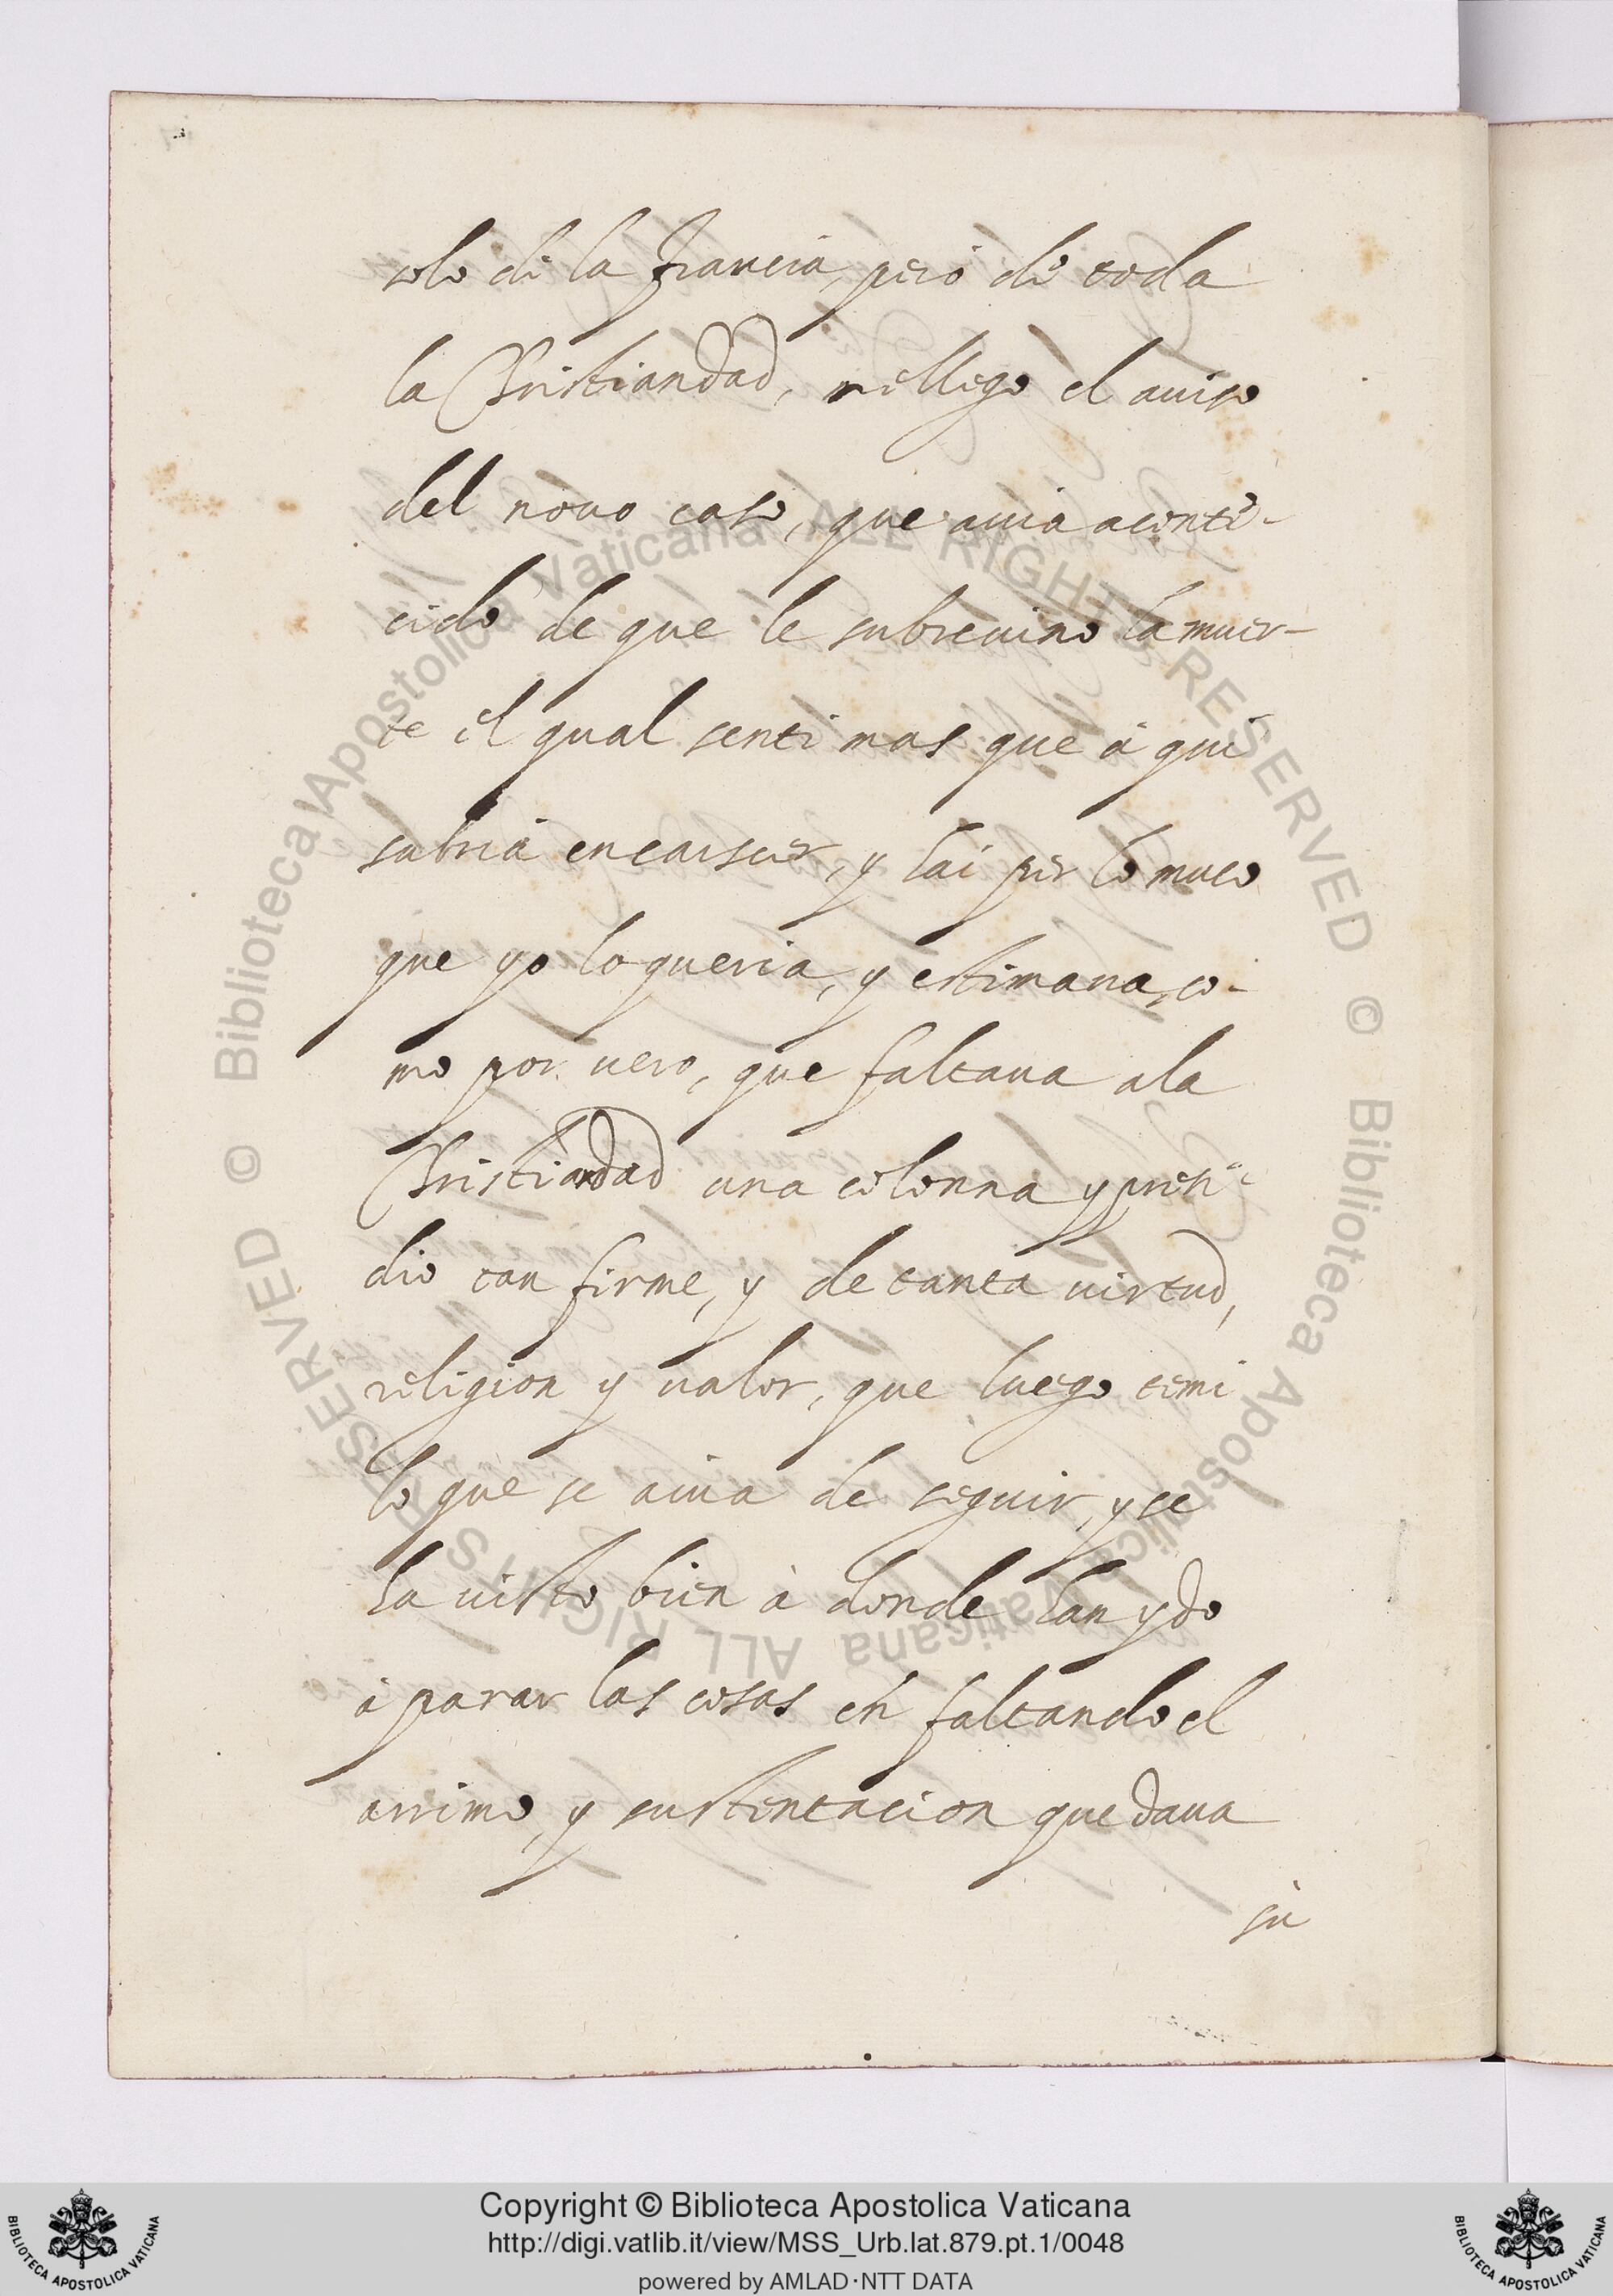 solo de la francia, pero de toda
la Christiandad, me llego el auiso
del nouo caso, que auia aconte-
cido de que le subreuino la muer-
te el qual senti mas que a qui
sabria encarscer, y hai per lo muco
que yo lo queria, y estimaua, co-
mo por uero, que faltaua a la
Christiandad una colonna y presi-
dio tan firme, y de tanta uirtud,
religion y ualor, que luego temi
lo que se auia de seguir, y se
ha uisto bien à donde han ydo
à parar las cosas en faltando el
arrimo, y sustentacion que daua
su
Copyright © Biblioteca Apostolica Vaticana
http://digi.vatlib.it/view/MSS_Urb.lat.879.pt.1/0048
powered by AMLAD·NTT DATA
BIBLIOTECA APOSTOLICA VATICANA
BIBLIOTECA APOSTOLICA VATICANA
© Biblioteca Apostolica Vaticana ALL RIGHTS RESERVED
© Biblioteca Apostolica Vaticana ALL RIGHTS RESERVED